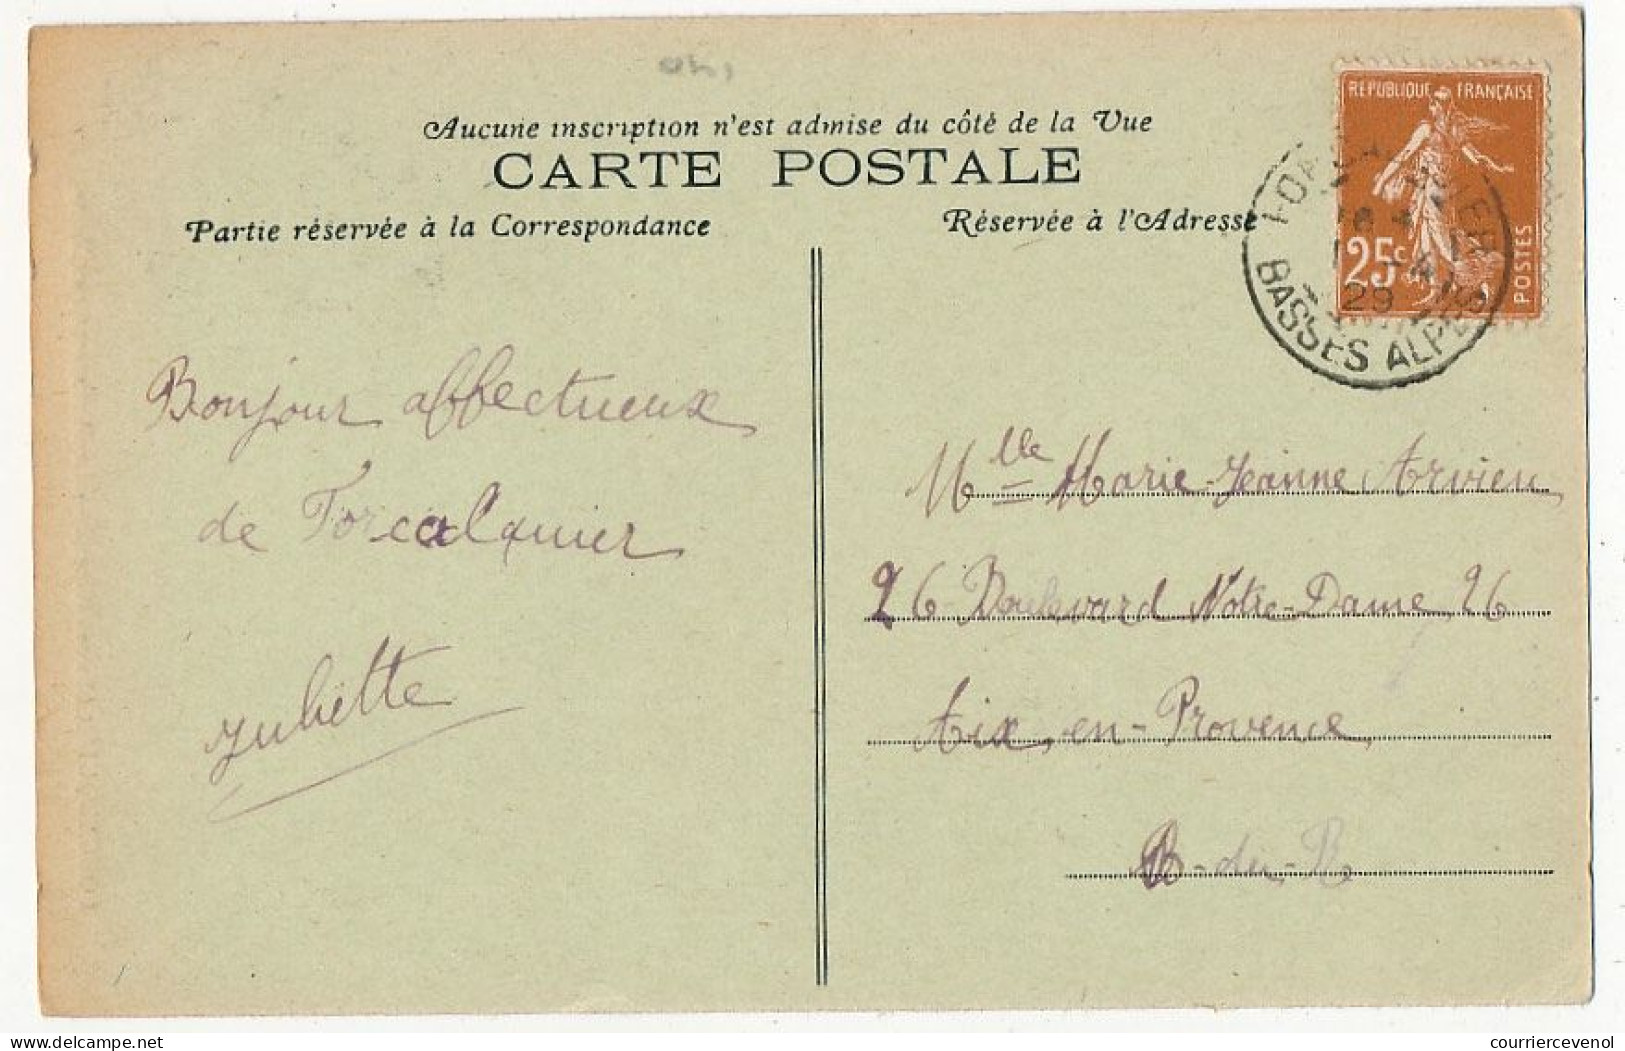 Aucune inscription n'est admise du côté de la Vue
CARTE POSTALE
Partie réservée à la Correspondance
Réservée à l'Adresse
RÉPUBLIQUE FRANÇAISE
25c
POSTES
FORCALQUIER
29
BASSES ALPES
Bonjour affectueux
de Forcalquier
Juliette
Mlle Marie-Jeanne Arvieu
26 Boulevard Notre-Dame, 26
Aix-en-Provence
B-du-R
delcampe.net
courriercevenol